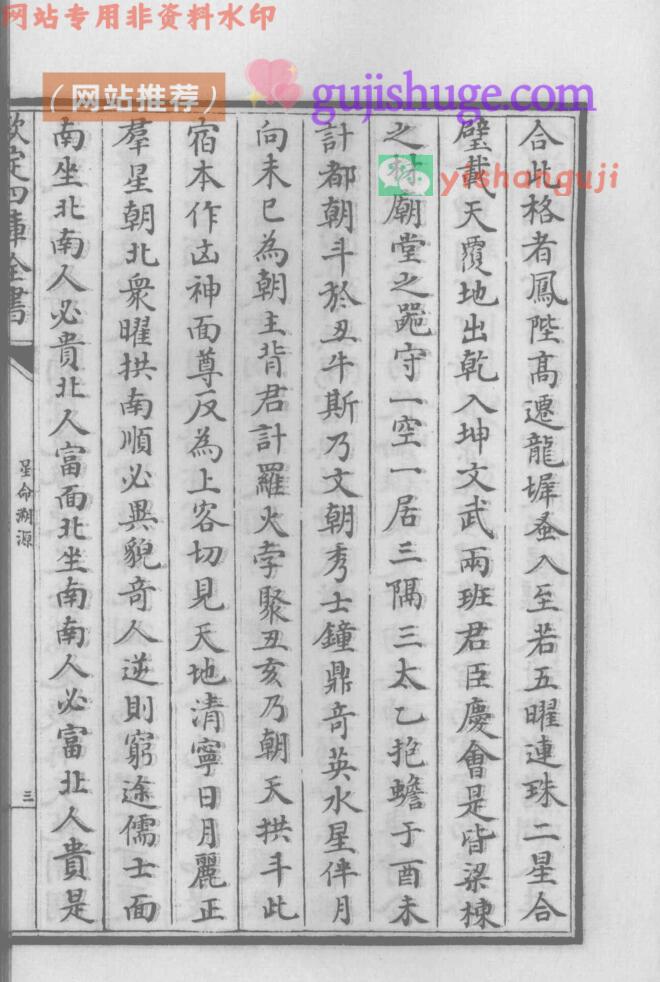 网站专用非资料水印
（网站推荐）
gujishuge.com
yishanguji
合此格者鳳陛髙遷龍墀蚤入至若五曜連珠二星合
璧載天覆地出乾入坤文武兩班君臣慶會是皆梁棟
之材廟堂之器守一空一居三隔三太乙抱蟾于酉未
計都朝斗於丑牛斯乃文朝秀士鐘鼎竒英水星伴月
向未巳為朝主背君計羅火孛聚丑亥乃朝天拱斗此
宿本作凶神面尊反為上客切見天地清寧日月麗正
羣星朝北衆曜拱南順必異貌竒人逆則窮途儒士面
南坐北南人必貴北人富面北坐南南人必富北人貴是
欽定四庫全書
星命溯源
三